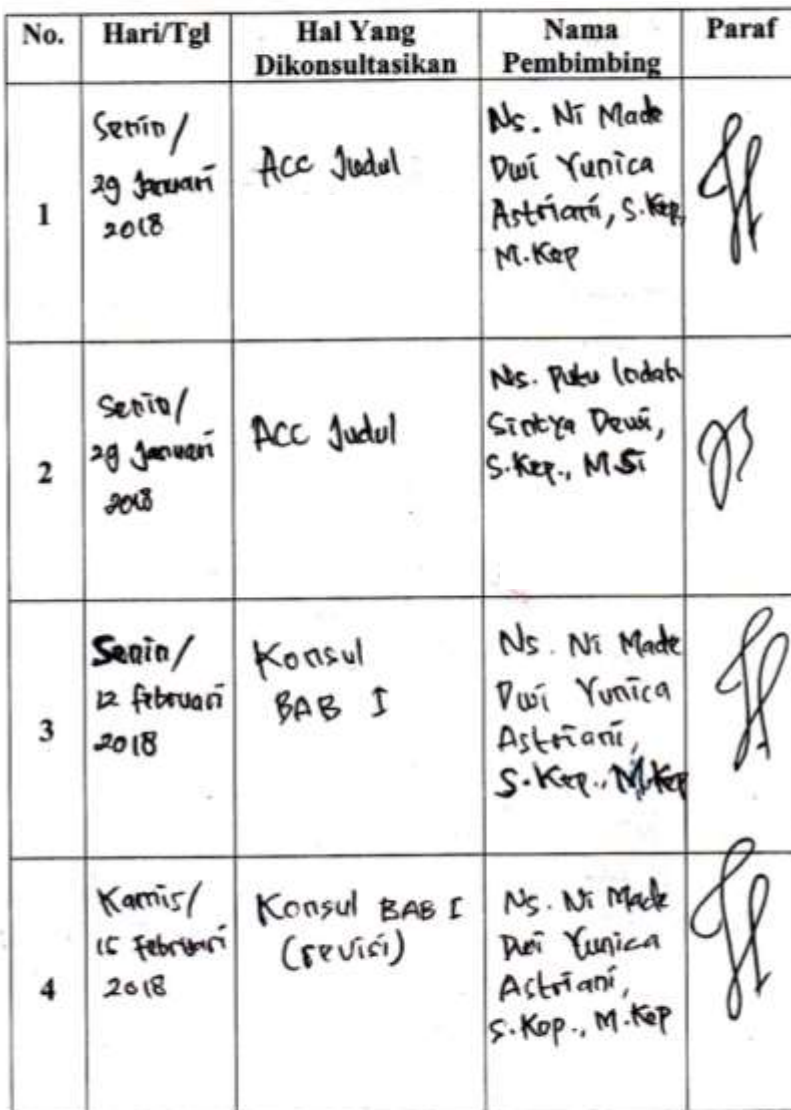 No. Hari/Tgl Hal Yang Dikonsultasikan Nama Pembimbing Paraf
1
Senin/
29 Januari
2018
Acc Judul
Ns. Ni Made
Dwi Yunica
Astriani, S.Kep,
M.Kep
2
Senin/
29 Januari
2018
Acc Judul
Ns. Putu Indah
Sintya Dewi,
S.Kep., M.Si
3
Senin/
12 Februari
2018
Konsul
BAB I
Ns. Ni Made
Dwi Yunica
Astriani,
S.Kep., M.Kep
4
Kamis/
15 Februari
2018
Konsul BAB I
(revisi)
Ns. Ni Made
Dwi Yunica
Astriani,
S.Kep., M.Kep